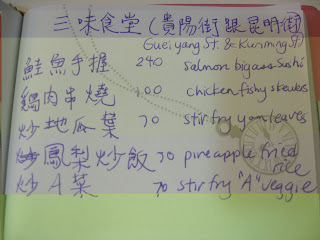 三味食堂(貴陽街跟昆明街)
Gueiyang St. & Kunming St)
鮭魚手握 240 salmon bigass sushi
鷄肉串燒 100 chicken fishy skewers
炒地瓜葉 70 stir fry yam leaves
鳳梨炒飯 70 pineapple fried rice
炒A菜 70 stir fry "A" veggie